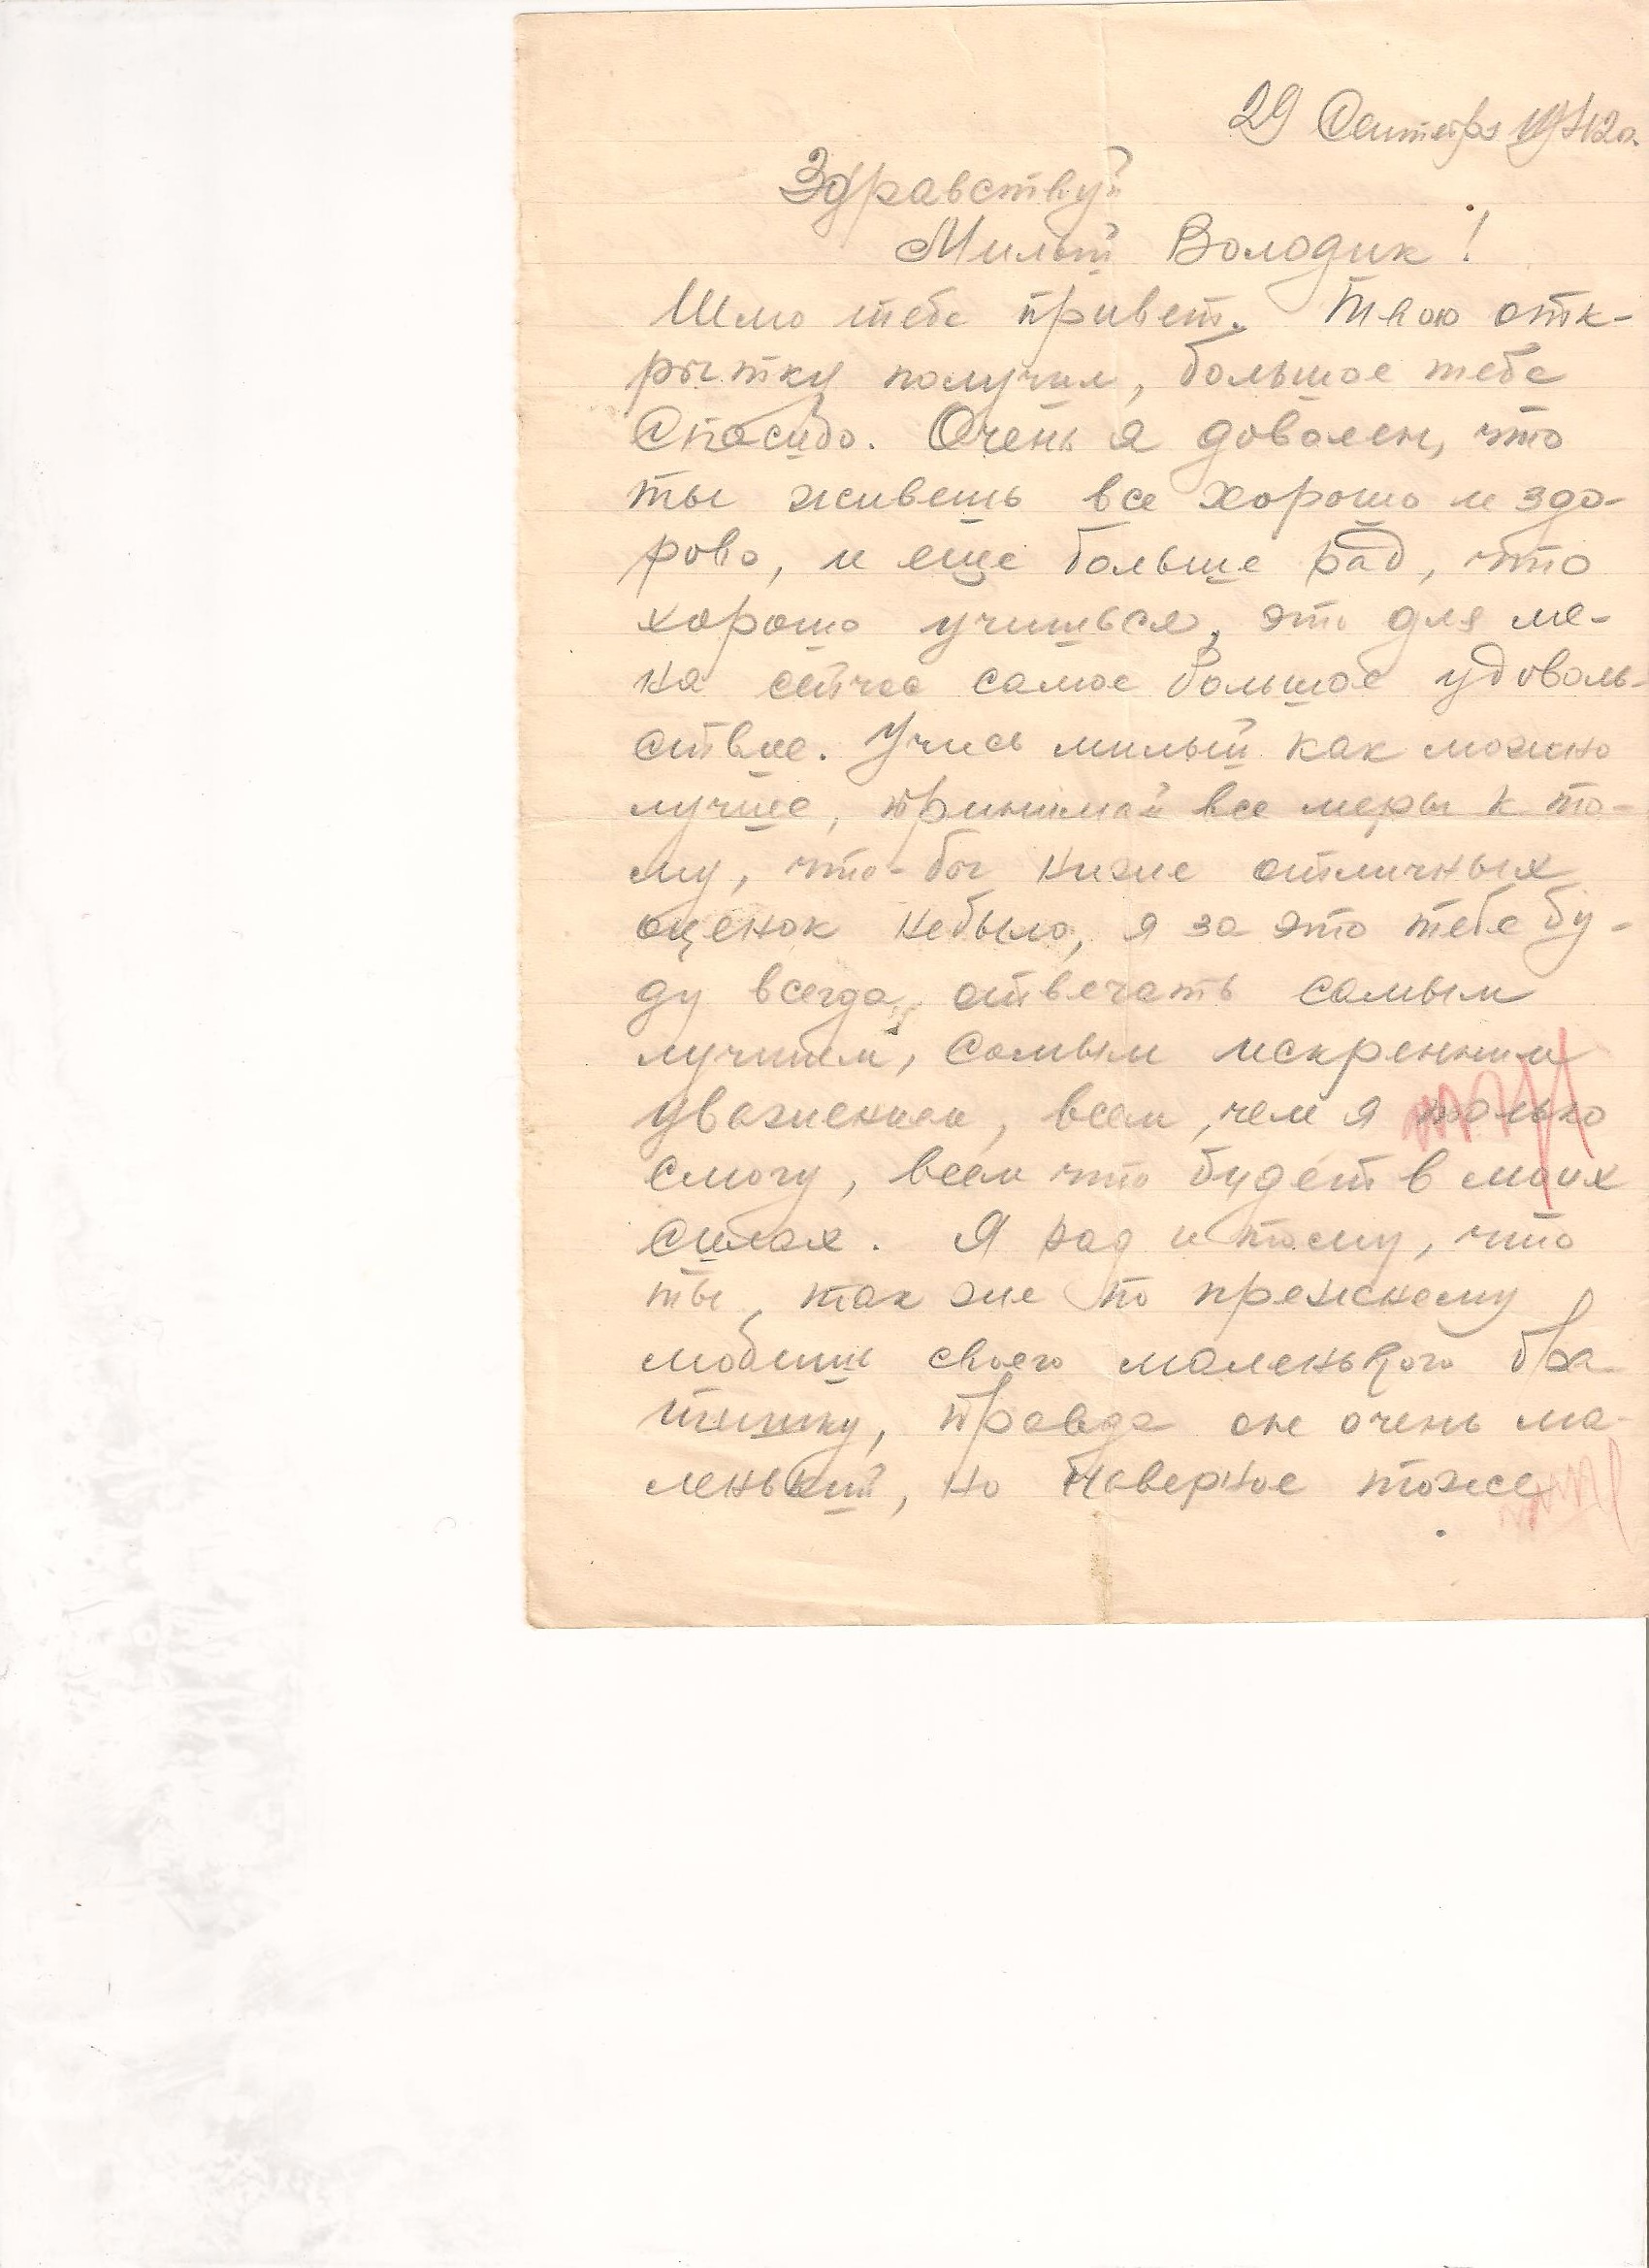 29 Сентября 1942г.
Здравствуй
Милый Володик!
Шлю тебе привет. Твою отк-
рытку получил, большое тебе
Спасибо. Очень я доволен, что
ты живешь все хорошо и здо-
рово, и еще больше рад, что
хорошо учишься, это для ме-
ня сейчас самое большое удоволь-
ствие. Учись милый как можно
лучше, принимай все меры к то-
му, что-бы ниже отличных
оценок небыло, я за это тебе бу-
ду всегда отвечать самым
лучшим, самым искренним
уважением, всем, чем я только
смогу, всем что будет в моих
силах. Я рад и тому, что
ты, так же по прежнему
любиш своего маленького бра-
тишку, правда он очень ма-
ленький, но наверное тоже